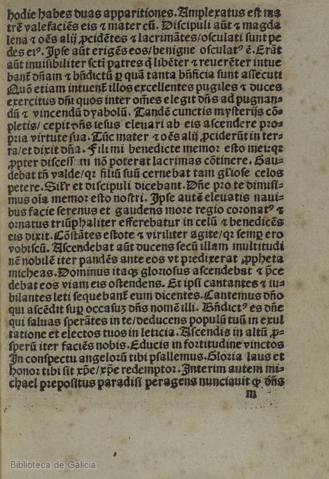 hodie habes duas apparitiones. Amplexatus est matrē valefaciēs eis ⁊ mater eū. Discipuli aūt ⁊ magda
lena ⁊ oēs alij ꝓcidētes ⁊ lacrimātes/osculati sunt pe
des eiꝰ. Ipse aūt erigēs eos/benigne osculatꝰ ē. Erāt
aūt inuisibiliter scti patres q̄ libēter ⁊ reuerēter intue
banť dn̄am ⁊ bn̄dictū ꝑ quā tanta bn̄ficia sunt assecuti
Quō etiam intuenť illos excellentes pugiles ⁊ duces
exercitus dn̄i quos inter om̄es elegit dn̄s ad pugnan
dū ⁊ vincendū dyabolū. Tandē cunctis mysterijs cō
pletis/ cepit dn̄s iesus eleuari ab eis ascendere pro
pria virtute sua. Tūc mater ⁊ oēs alij ꝓciderūt in ter
ra/et dixit dn̄a. Fili mi benedicte memor esto mei: qꝫ
ꝓpter discess nō poterat lacrimas cōtinere. Gau
debat tn̄ valde/ qꝛ filiū suū cernebat tam gl̄iose celos
petere. Sil̄r et discipuli dicebant. Dn̄e pro te dimisi
mus oīa memor esto nostri. Ipse autē eleuatis mani
bus facie serenus et gaudens more regio coronatꝰ ⁊
ornatus triūphaliter efferebatur in celū ⁊ benedicēs
eis dixit. Cōstātes estote ⁊ viriliter agite/ qꝛ semꝑ ero
vobiscū. Ascendebat aūt ducens secū illam multitudi
nē nobilē iter pandēs ante eos vt predixerat ꝓpheta
micheas. Dominus itaqꝫ gloriosus ascendebat ⁊ p̄ce
debat eos viam eis ostendens. Et ipsi cantantes ⁊ iu
bilantes leti sequebanť eum dicentes. Cantemus dn̄o
qui ascēdit suꝑ occasuꝫ dn̄s nomē illi. Bn̄dictꝰ es dn̄e
qui saluas sperātes in te/deducens populū tuū in exul
tatione et electos tuos in leticia. Ascendis in altū ꝓ
sperū iter faciēs nobis. Educis in fortitudine vinctos
In conspectu angeloꝝ tibi psallemus. Gloria laus et
honor tibi sit xp̄e/ xp̄e redemptor. Interim autem mi
chael prepositus paradisi peragens nunciauit ꝙ dn̄s
m
Biblioteca de Galicia